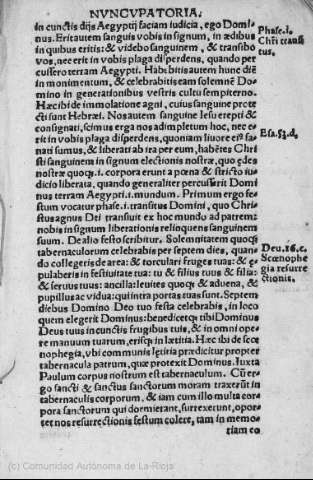 NVNCVPATORIA.
in cunctis dijs Aegyptij faciam iudicia, ego Domi-
nus. Erit autem sanguis vobis in signum, in ædibus
in quibus eritis: & videbo sanguinem, & transibo
vos, nec erit in vobis plaga disperdens, quando per
cussero terram Aegypti. Habebitis autem hunc diē
in monimentum, & celebrabitis eam solemnē Do-
mino in generationibus vestris cultu sempiterno.
Hæc ibi de immolatione agni, cuius sanguine prote
cti sunt Hebræi. Nos autem sanguine Iesu erepti &
consignati, scimus ergo nos adimpletum hoc, nec e-
rit in vobis plaga disperdens, quoniam liuore eius sa-
nati sumus, & liberati ab ira per eum, habētes Chri
sti sanguinem in signum electionis nostræ, quo ędes
nostræ quoq; .i. corpora erunt a pœna & stricto iu-
dicio liberata, quando generaliter percusserit Domi
nus terram Aegypti .i. mundum. Primum ergo fe-
stum vocatur phase .i. transitus Domini, quo Chri-
stus agnus Dei transiuit ex hoc mundo ad patrem:
nobis in signum liberationis relinquens sanguinem
suum. De alio festo scribitur. Solemnitatem quoq;
tabernaculorum celebrabis per septem dies, quan-
do collegeris de area: & torculari fruges tuas: & e-
pulaberis in festiuitate tua: tu & filius tuus & filia:
& seruus tuus: ancilla: leuites quoq; & aduena, &
pupillus ac vidua: qui intra portas tuas sunt. Septem
diebus Domino Deo tuo festa celebrabis, in loco
quem elegerit Dominus: benedicetq; tibi Dominus
Deus tuus in cunctis frugibus tuis, & in omni ope-
re manuum tuarum, erisq; in lætitia. Hæc ibi de sce
nophegia, vbi communis lętitia prædicitur propter
tabernacula patrum, quæ protexit Dominus. Iuxta
Paulum corpus nostrum est tabernaculum. Cū er-
go sancti & sanctus sanctorum moram traxerūt in
tabernaculis corporum, & iam cum illo multa cor-
pora sanctorum qui dormierant, surrexerunt, opor-
tet nos resurrectionis festum colere, tam in memo-
riam eo
Phase .i.
Chri transi
tus.
Esa. 53. d,
Deu. 16. c.
Scœnophe
gia resurre
ctionis.
(c) Comunidad Autónoma de La-Rioja